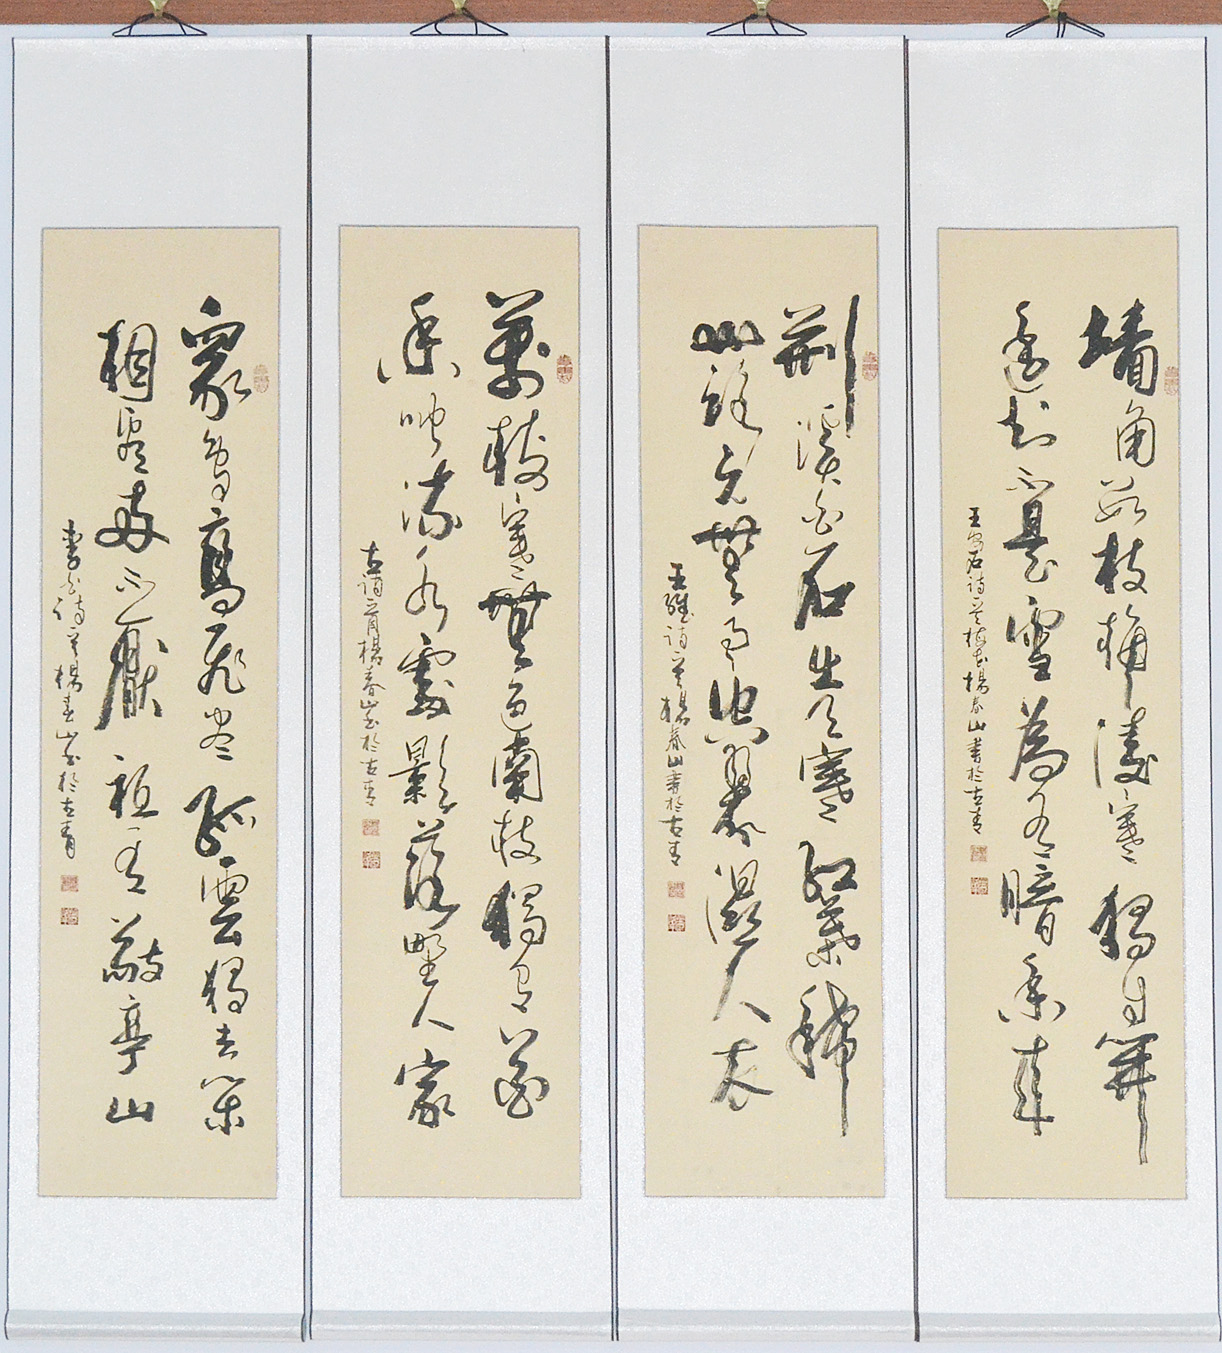 墻角數枝梅凌寒獨自開
遥知不是雪為有暗香来
王安石詩一首梅花楊春山書於古青
荆溪白石出天寒紅葉稀
山路元無雨空翠濕人衣
王維詩一首楊春山書於古青
萬樹寒無色南枝獨有花
香聞流水處影落野人家
古詩一首楊春山書於古青
衆鳥高飛盡孤雲獨去閑
相看兩不厭祗有敬亭山
李白詩一首楊春山書於古青